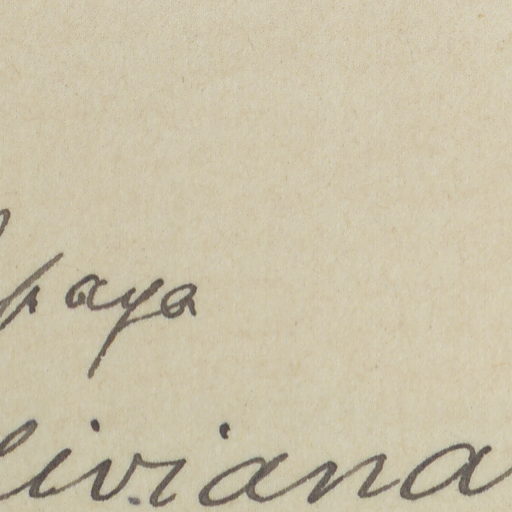 paya
liviana